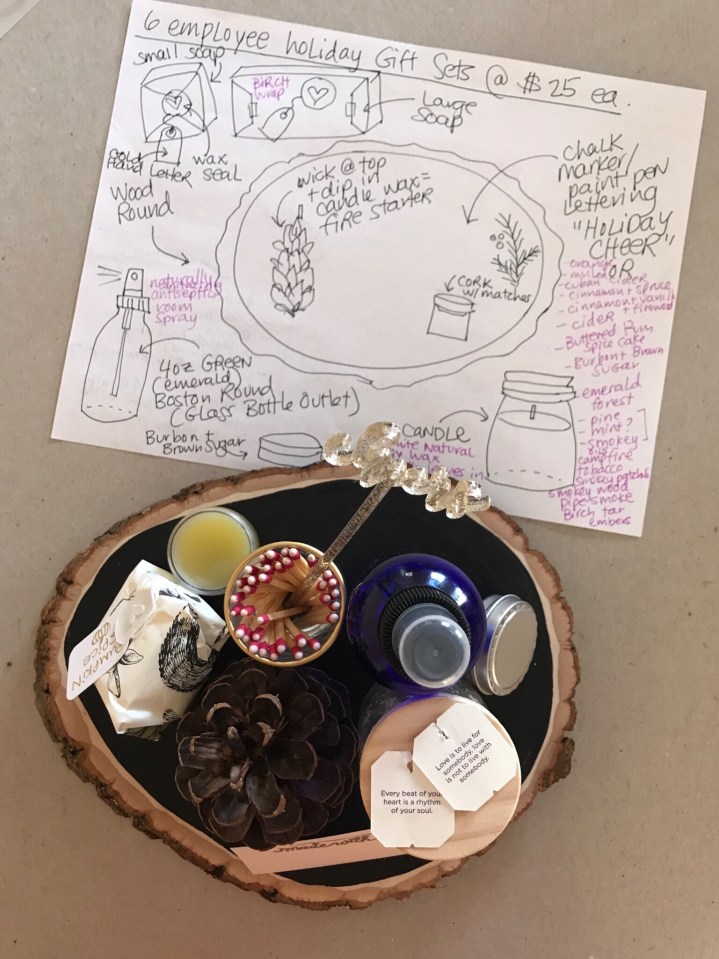 6 employee holiday Gift Sets @ $25 ea.
small soap
BiRCH
wrap
Large
Soap
Hand Letter
wax
seal
Wood
Round
wick @ top
+ dip in
candle wax=
fire starter
chalk
marker/
paint pen
Lettering
"HOLiDAY
CHEER"
OR
CORK
w/ matches
naturally
antiseptic
room
spray
4oz GREEN
(emerald)
Boston Round
(Glass Bottle Outlet)
Burbon +
Brown Sugar
CANDLE
Natural
wax
- orange
- cuban cider
- cinnamon + spruce
- cinnamon + vanilla
- cider + firewood
- Buttered Rum
spice cake
- Burbon + Brown
Sugar
- emerald
forest
- pine
mint?
- smokey
campfire
tobacco
smokey patchouli
smokey wood
pipe smoke
Birch tar
embers
PUMPKIN
SPICE
Love is to live for
somebody, love
is not to live with
somebody.
Every beat of your
heart is a rhythm
of your soul.